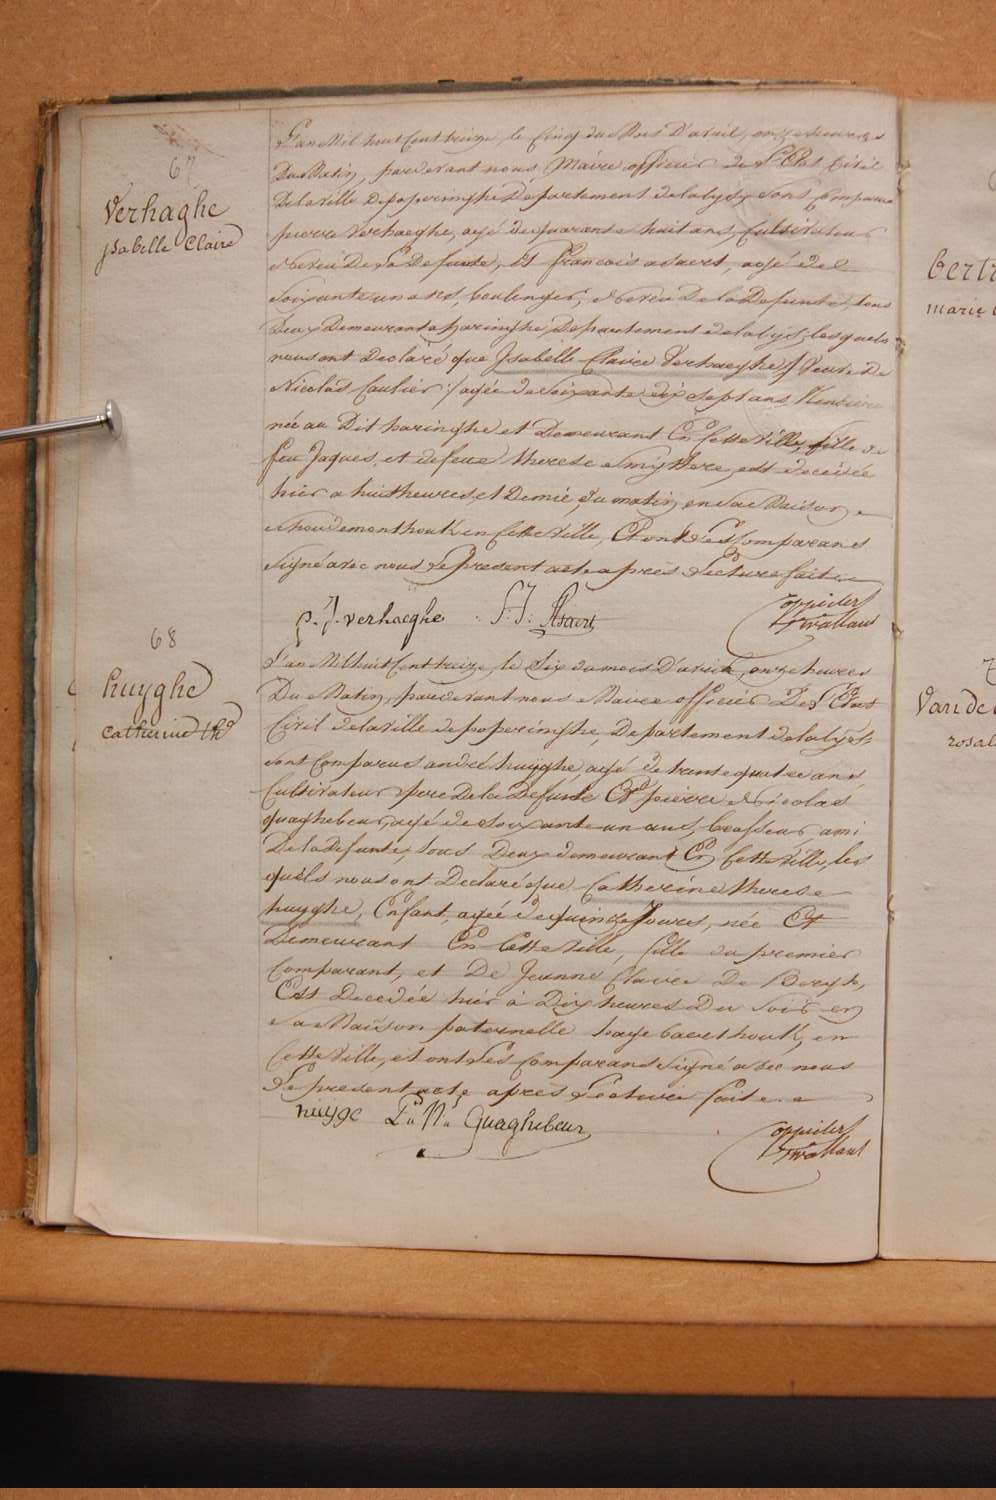 67
Verhaghe
ysabelle Claire
L'an Mil huit Cent treize, le Cinq du Mois D'avril, onze heures
Du Matin, pardevant nous Maire officier de L'Etat Civil
De la ville De poperinghe Département de la lys, sont Comparus
pierre Verhaeghe, agé de quarante huit ans, Cultivateur
Neveu De La Defunte, Et francois asaert, agé de
Soixante un ans, boulenger, Neveu De la Defunte, tous
Deux Demeurant a haringhe, Departement de la lys, les quels
nous ont Declaré que Isabelle Claire Verhaeghe, Veuve De
Nicolas Caulier, agée de Soixante dix Sept ans, Rentiere
née au Dit haringhe et Demeurant En Cette Ville, fille de
feu Jaques, et de feue therese, est decedée
hier a huit heures et Demie du matin, en Sa Maison
en Cette Ville, Et ont Les Comparans
Signé avec nous Le Present acte après Lecture faite
p. J. verhaeghe F: J: Asaert
68
huyghe
Catherine thé
L'an Mil huit Cent treize, le Six du mois D'avril, onze heures
Du Matin, pardevant nous Maire officier De L'Etat
Civil de la ville de poperinghe, Departement de la lys,
sont Comparus andré huyghe, agé de trente quatre ans
Cultivateur pere De la Defunte Et pierre Nicolas
quaghebeur, agé de Soixante un ans, brasseur, ami
De la Defunte, tous Deux demeurant En Cette Ville, les
quels nous ont Declaré que Catherine therese
huyghe, Enfant, agée de quinze Jours, née Et
Demeurant En Cette Ville, fille du premier
Comparant, et De Jeanne Claire De
Est Decedée hier à Dix heures Du Soir en
Sa Maison paternelle en
Cette Ville, et ont Les Comparans Signé avec nous
Le present acte après Lecture faite
huyge P: N: Quaghebeur
marie
Vande
rosal